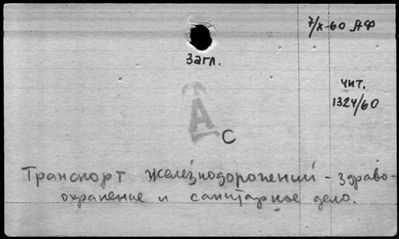 7/X-60 АФ
загл.
чит.
1324/60
А
С
Транспорт железнодорожный - здраво-
охранение и санитарное дело.